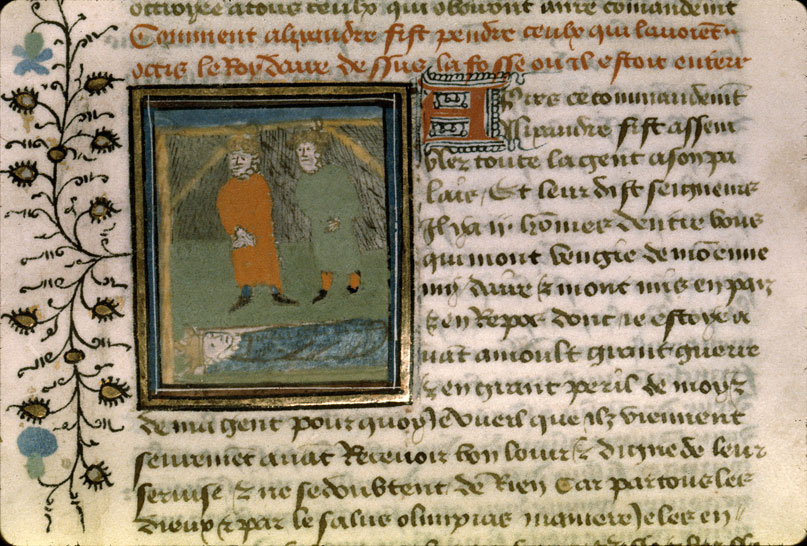 octroyee a tous ceulx qui obouront a nre comandeint
Comment alixandre fist pendre ceulx qui lauoient
occis le Roy daire dessus la fosse ou il estoit enterr
Apres ce commandemt
Alixandre fist assem
bler toute la gent a son pa
lais, Et leur dist seigneurs
Il ya ii. hommes dentre vous
qui mont vengie de mo enne
my daire & mont mis en paix
& en Repos dont ie estoye a
uat a moult grant guerre
& en grant peril de moy &
de ma gent pour quoy Je vueil que ilz viennent
seuremet auat Receuoir bon louir & digne de leur
seruise, & ne se doubtent de Rien Car par tous les
dieux & par le salus olimpias ma mere Je les en